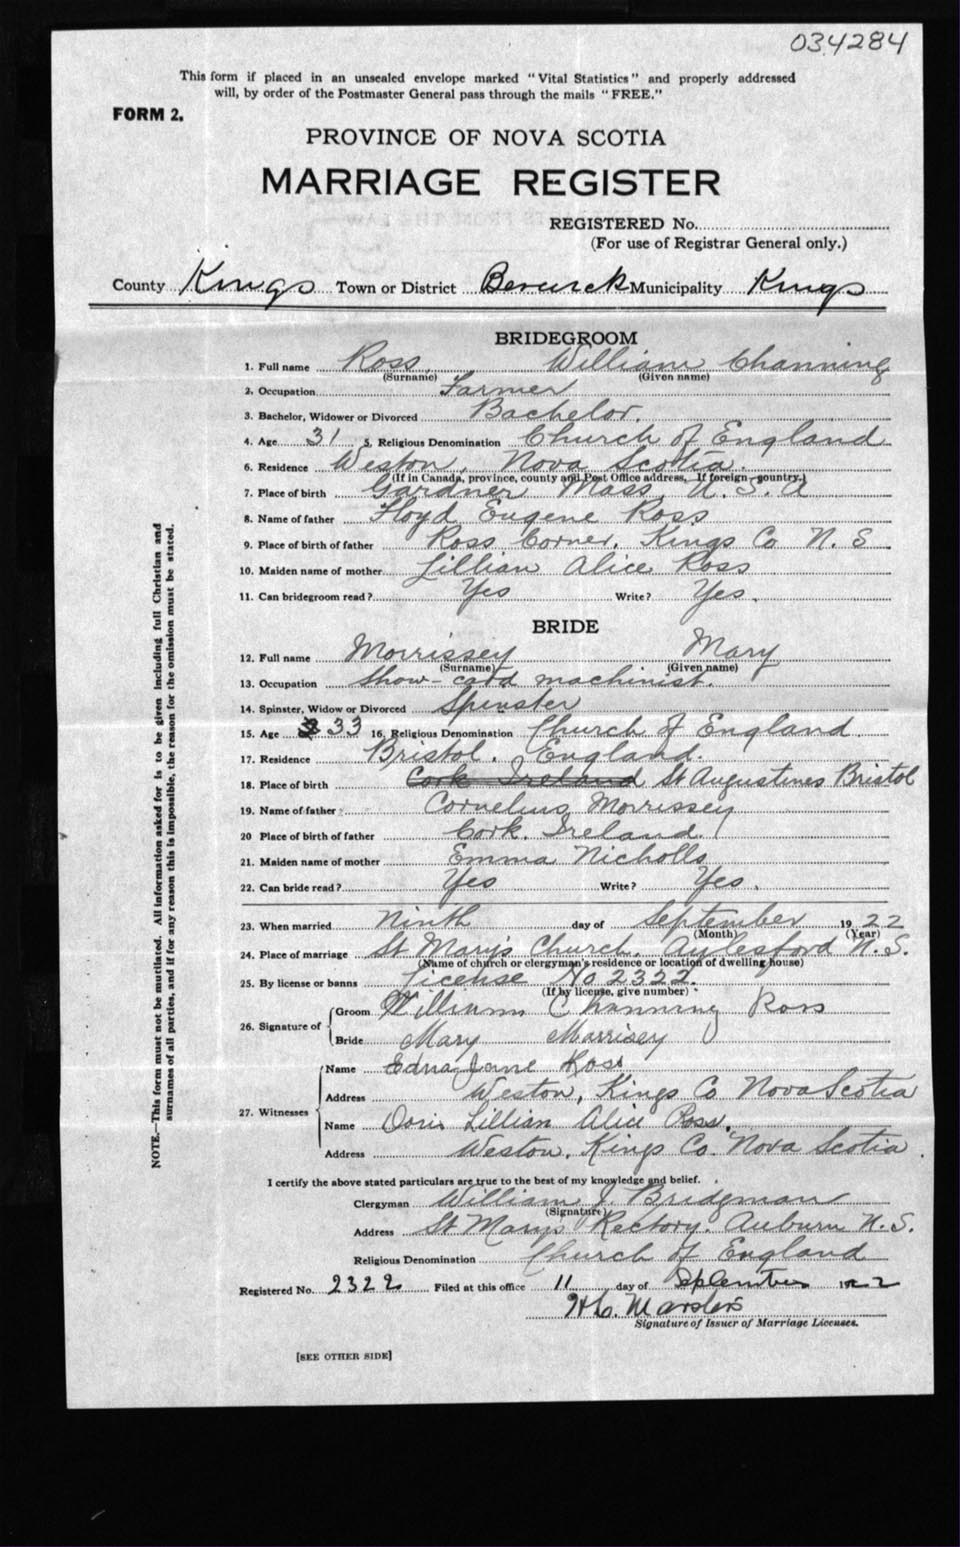 034284
This form if placed in an unsealed envelope marked "Vital Statistics" and properly addressed
will, by order of the Postmaster General pass through the mails "FREE."
FORM 2.
PROVINCE OF NOVA SCOTIA
MARRIAGE REGISTER
REGISTERED No.
(For use of Registrar General only.)
County Kings Town or District Berwick Municipality Kings
BRIDEGROOM
1. Full name Ross, William Channing
(Surname) (Given name)
2. Occupation Farmer
3. Bachelor, Widower or Divorced Bachelor.
4. Age 31 5. Religious Denomination Church of England
6. Residence Weston, Nova Scotia.
(If in Canada, province, county and Post Office address, If foreign—country.)
7. Place of birth Gardner Mass. U.S.A
8. Name of father Floyd Eugene Ross
9. Place of birth of father Ross Corner, Kings Co N.S.
10. Maiden name of mother Lillian Alice Ross
11. Can bridegroom read? Yes Write? Yes.
BRIDE
12. Full name Morrissey Mary
(Surname) (Given name)
13. Occupation Show-card machinist.
14. Spinster, Widow or Divorced Spinster
15. Age 33 16. Religious Denomination Church of England.
17. Residence Bristol, England.
18. Place of birth Cork Ireland St Augustines Bristol
19. Name of father Cornelius Morrissey
20 Place of birth of father Cork, Ireland.
21. Maiden name of mother Emma Nicholls
22. Can bride read? Yes Write? Yes.
23. When married Ninth day of September 1922
(Month) (Year)
24. Place of marriage St Mary's Church, Aylesford N.S.
(Name of church or clergyman's residence or location of dwelling house)
25. By license or banns License No 2322.
(If by license, give number)
26. Signature of Groom William Channing Ross
Bride Mary Morrisey
27. Witnesses
Name Edna Jane Ross
Address Weston, Kings Co Nova Scotia
Name Doris Lillian Alice Ross.
Address Weston, Kings Co. Nova Scotia.
I certify the above stated particulars are true to the best of my knowledge and belief.
Clergyman William J. Bridgman
(Signature)
Address St Marys Rectory. Auburn N.S.
Religious Denomination Church of England
Registered No. 2322 Filed at this office 11 day of September 1922
H.C. Marsters
Signature of Issuer of Marriage Licenses.
[SEE OTHER SIDE]
NOTE.—This form must not be mutilated. All information asked for is to be given including full Christian and
surnames of all parties, and if for any reason this is impossible, the reason for the omission must be stated.